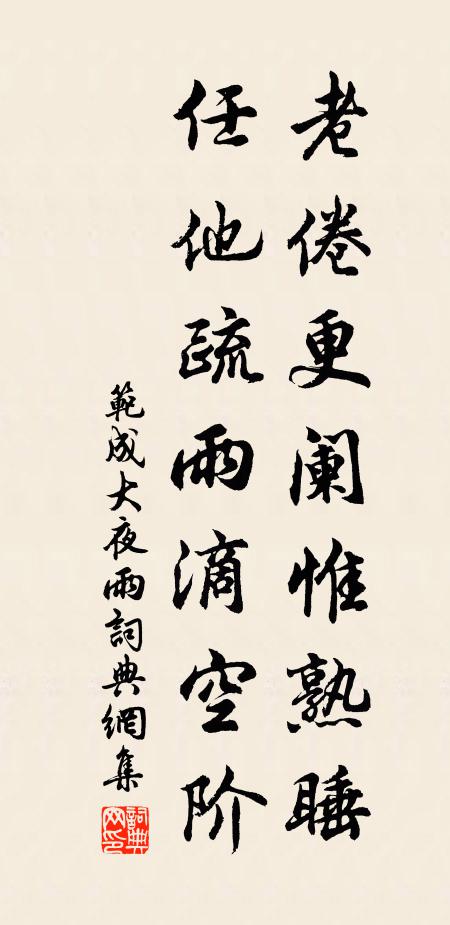 老倦更阑惟熟睡
任他疏雨滴空阶
範成大夜雨詞典網集
詞典网印